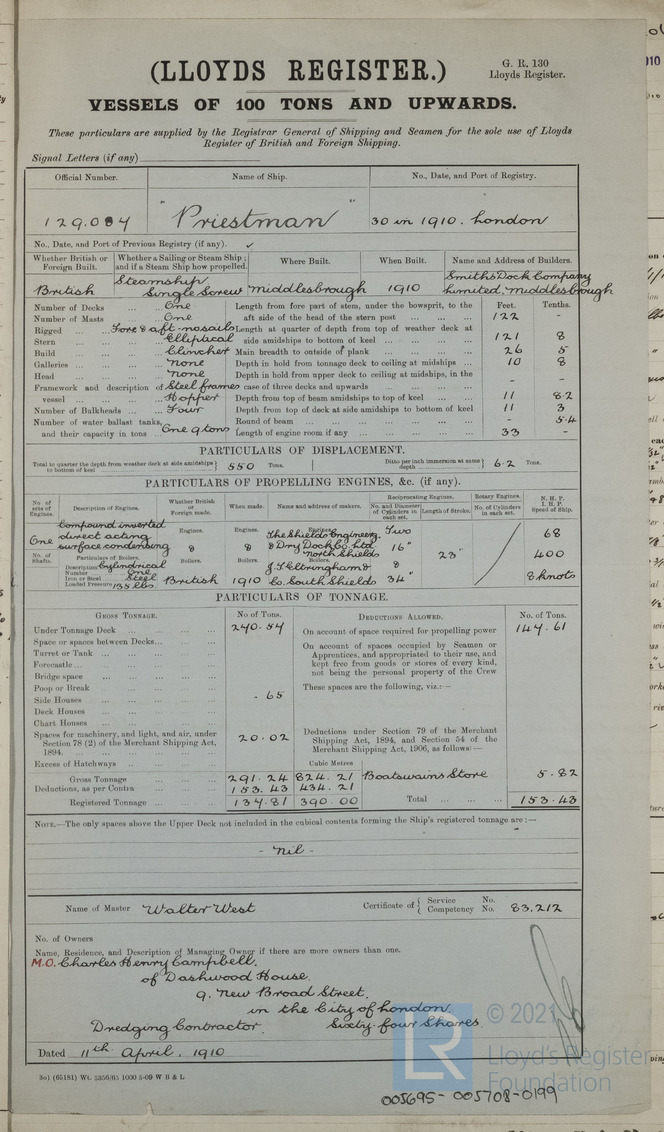 (LLOYDS REGISTER.)
G. R. 130
Lloyds Register.
VESSELS OF 100 TONS AND UPWARDS.
These particulars are supplied by the Registrar General of Shipping and Seamen for the sole use of Lloyds
Register of British and Foreign Shipping.
Signal Letters (if any)
Official Number. Name of Ship. No., Date, and Port of Registry.
129.084 "Priestman" 30 in 1910. London
No., Date, and Port of Previous Registry (if any). ✓
Whether British or Foreign Built. Whether a Sailing or Steam Ship; and if a Steam Ship how propelled. Where Built. When Built. Name and Address of Builders.
British Steamship Single Screw Middlesbrough 1910 Smiths Dock Company Limited, Middlesbrough
Number of Decks One Length from fore part of stem, under the bowsprit, to the Feet. Tenths.
Number of Masts One aft side of the head of the stern post 122 -
Rigged Fore & aft-no sails Length at quarter of depth from top of weather deck at
Stern Elliptical side amidships to bottom of keel 121 8
Build Clincher Main breadth to outside of plank 26 5
Galleries None Depth in hold from tonnage deck to ceiling at midships 10 8
Head None Depth in hold from upper deck to ceiling at midships, in the
Framework and description of Steel frames case of three decks and upwards - -
vessel Hopper Depth from top of beam amidships to top of keel 11 8.2
Number of Bulkheads Four Depth from top of deck at side amidships to bottom of keel 11 3
Number of water ballast tanks, Round of beam - 5.4
and their capacity in tons One 9 tons Length of engine room if any 33 -
PARTICULARS OF DISPLACEMENT.
Total to quarter the depth from weather deck at side amidships to bottom of keel 550 Tons. Ditto per inch immersion at same depth 6.2 Tons.
PARTICULARS OF PROPELLING ENGINES, &c. (if any).
No. of sets of Engines. Description of Engines. Whether British or Foreign made. When made. Name and address of makers. Reciprocating Engines. Rotary Engines. N. H. P. I. H. P. Speed of Ship.
No. and Diameter of Cylinders in each set. Length of Stroke. No. of Cylinders in each set.
One Compound inverted direct acting surface condensing Engines. Engines. Engines. The Shields Engineering & Dry Dock Co. Ltd North Shields Two 16" 23" 68
No. of Shafts. Particulars of Boilers. Boilers. Boilers. Boilers. 400
Description Cylindrical
Number One
Iron or Steel Steel British 1910 J. T. Eltringham & Co. South Shields 34" 8 knots
Loaded Pressure 135 lbs.
PARTICULARS OF TONNAGE.
GROSS TONNAGE. No of Tons. DEDUCTIONS ALLOWED. No. of Tons.
Under Tonnage Deck 270.57 On account of space required for propelling power 147.61
Space or spaces between Decks On account of spaces occupied by Seamen or
Turret or Tank Apprentices, and appropriated to their use, and
Forecastle kept free from goods or stores of every kind,
Bridge space not being the personal property of the Crew
Poop or Break These spaces are the following, viz.:—
Side Houses .65
Deck Houses
Chart Houses
Spaces for machinery, and light, and air, under Section 78 (2) of the Merchant Shipping Act, 1894. 20.02 Deductions under Section 79 of the Merchant Shipping Act, 1894, and Section 54 of the Merchant Shipping Act, 1906, as follows:—
Excess of Hatchways Cubic Metres
Gross Tonnage 291.24 824.21 Boatswains Store 5.82
Deductions, as per Contra 153.43 434.21
Registered Tonnage 137.81 390.00 Total 153.43
NOTE.—The only spaces above the Upper Deck not included in the cubical contents forming the Ship's registered tonnage are:—
- Nil -
Name of Master Walter West Certificate of { Service No. Competency No. 83,212
No. of Owners
Name, Residence, and Description of Managing Owner if there are more owners than one.
M.O. Charles Henry Campbell,
of Dashwood House,
9. New Broad Street,
in the City of London
Dredging Contractor. Sixty-four Shares
Dated 11th April, 1910
3o) (65181) Wt. 5356/65 1000 5-09 W B & L
© 2021
LR
Lloyd's Register
Foundation
005695-005708-0199